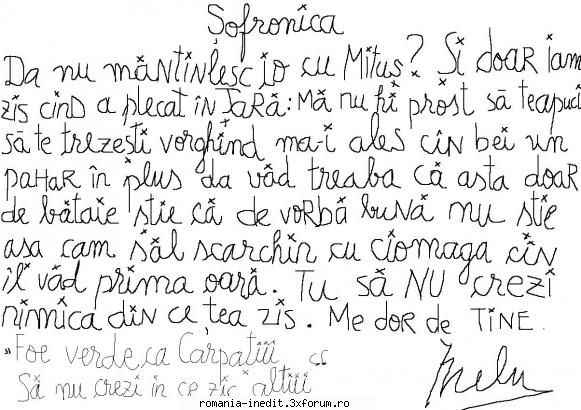 Sofronica
Da nu măntinlesc io cu Mitus? Si doar iam
zis cind a plecat în Țară: Mă nu fi prost să teapuci
să te trezesti vorghind ma-i ales cîn bei un
pahar în plus da văd treaba că asta doar
de bătaie stie că de vorbă bună nu stie
asa cam săl scarchin cu ciomaga cîn
il văd prima oară. Tu să NU crezi
nimica din ce țea zis. Me dor de TINE.
"Foe verde, ca Carpatiii
Să nu crezi in ce zic altiii"
romania-inedit.3xforum.ro